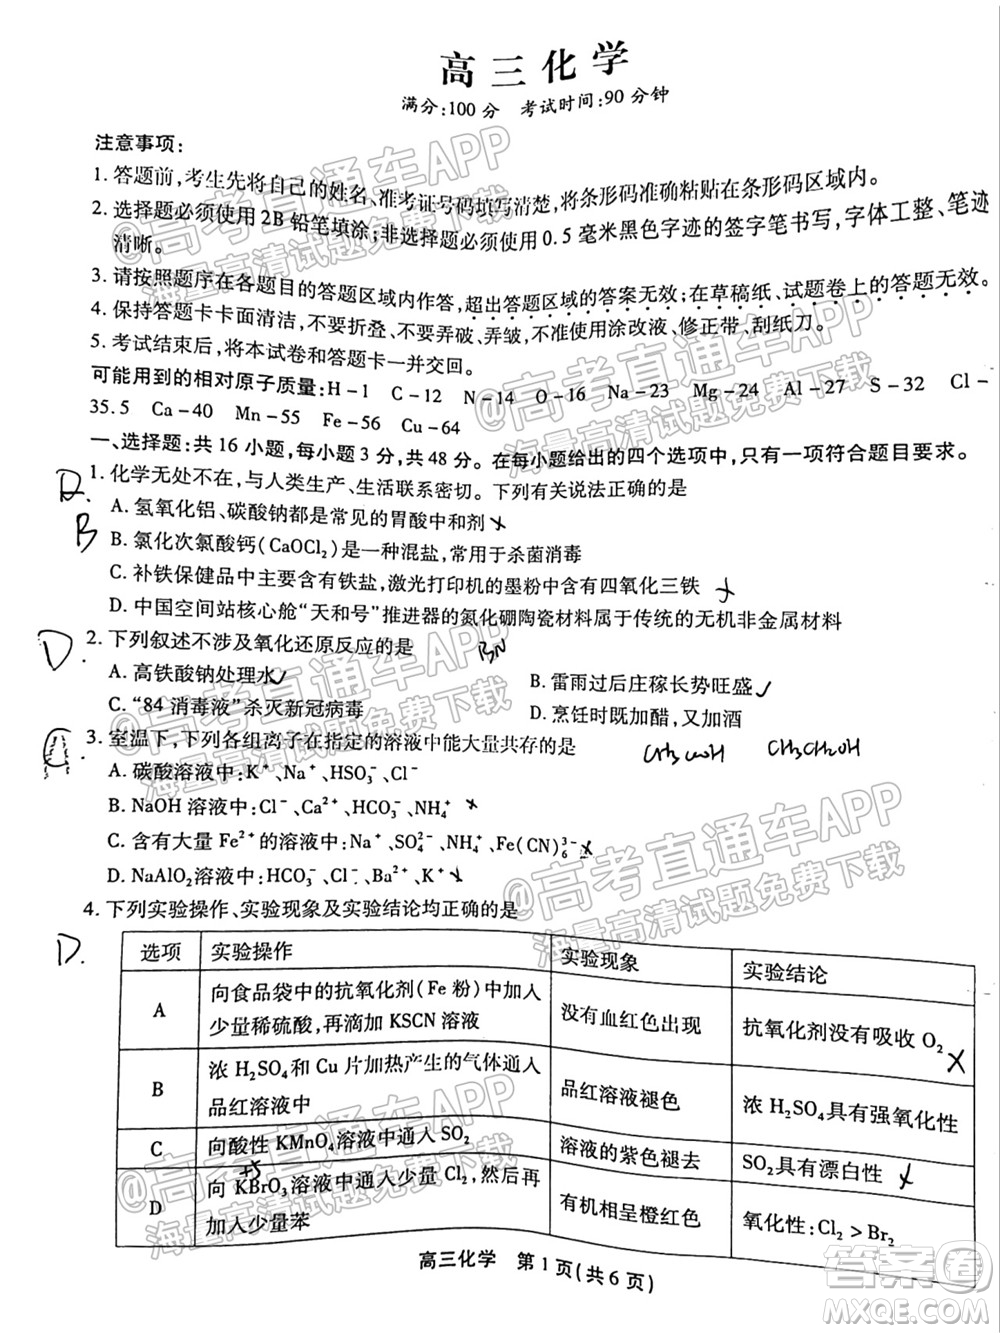 高三化学
满分:100分 考试时间:90分钟
注意事项:
1. 答题前,考生先将自己的姓名、准考证号码填写清楚,将条形码准确粘贴在条形码区域内。
2. 选择题必须使用2B铅笔填涂;非选择题必须使用0.5毫米黑色字迹的签字笔书写,字体工整、笔迹
清晰。
3. 请按照题序在各题目的答题区域内作答,超出答题区域的答案无效;在草稿纸、试题卷上的答题无效。
4. 保持答题卡卡面清洁,不要折叠、不要弄破、弄皱,不准使用涂改液、修正带、刮纸刀。
5. 考试结束后,将本试卷和答题卡一并交回。
可能用到的相对原子质量:H-1 C-12 N-14 O-16 Na-23 Mg-24 Al-27 S-32 Cl-
35.5 Ca-40 Mn-55 Fe-56 Cu-64
一、选择题:共16小题,每小题3分,共48分。在每小题给出的四个选项中,只有一项符合题目要求。
D. 1. 化学无处不在,与人类生产、生活联系密切。下列有关说法正确的是
A. 氢氧化铝、碳酸钠都是常见的胃酸中和剂 ×
B B. 氯化次氯酸钙(CaOCl₂)是一种混盐,常用于杀菌消毒
C. 补铁保健品中主要含有铁盐,激光打印机的墨粉中含有四氧化三铁 ×
D. 中国空间站核心舱“天和号”推进器的氮化硼陶瓷材料属于传统的无机非金属材料
D. 2. 下列叙述不涉及氧化还原反应的是 BN
A. 高铁酸钠处理水 ✓ B. 雷雨过后庄稼长势旺盛 ✓
C. “84消毒液”杀灭新冠病毒 D. 烹饪时既加醋,又加酒
3. 室温下,下列各组离子在指定的溶液中能大量共存的是 CH₃COOH CH₃CH₂OH
A. 碳酸溶液中:K⁺、Na⁺、HSO₃⁻、Cl⁻
B. NaOH溶液中:Cl⁻、Ca²⁺、HCO₃⁻、NH₄⁺ ×
C. 含有大量Fe²⁺的溶液中:Na⁺、SO₄²⁻、NH₄⁺、Fe(CN)₆³⁻ ×
D. NaAlO₂溶液中:HCO₃⁻、Cl⁻、Ba²⁺、K⁺ ×
4. 下列实验操作、实验现象及实验结论均正确的是
D.
选项 实验操作 实验现象 实验结论
A 向食品袋中的抗氧化剂(Fe粉)中加入少量稀硫酸,再滴加KSCN溶液 没有血红色出现 抗氧化剂没有吸收O₂ ×
B 浓H₂SO₄和Cu片加热产生的气体通入品红溶液中 品红溶液褪色 浓H₂SO₄具有强氧化性
C 向酸性KMnO₄溶液中通入SO₂ 溶液的紫色褪去 SO₂具有漂白性 ×
+5
D 向KBrO₃溶液中通入少量Cl₂,然后再加入少量苯 有机相呈橙红色 氧化性:Cl₂>Br₂
高三化学 第1页(共6页)
@高考直通车APP
海量高清试题免费下载
答案圈
MXQE.COM